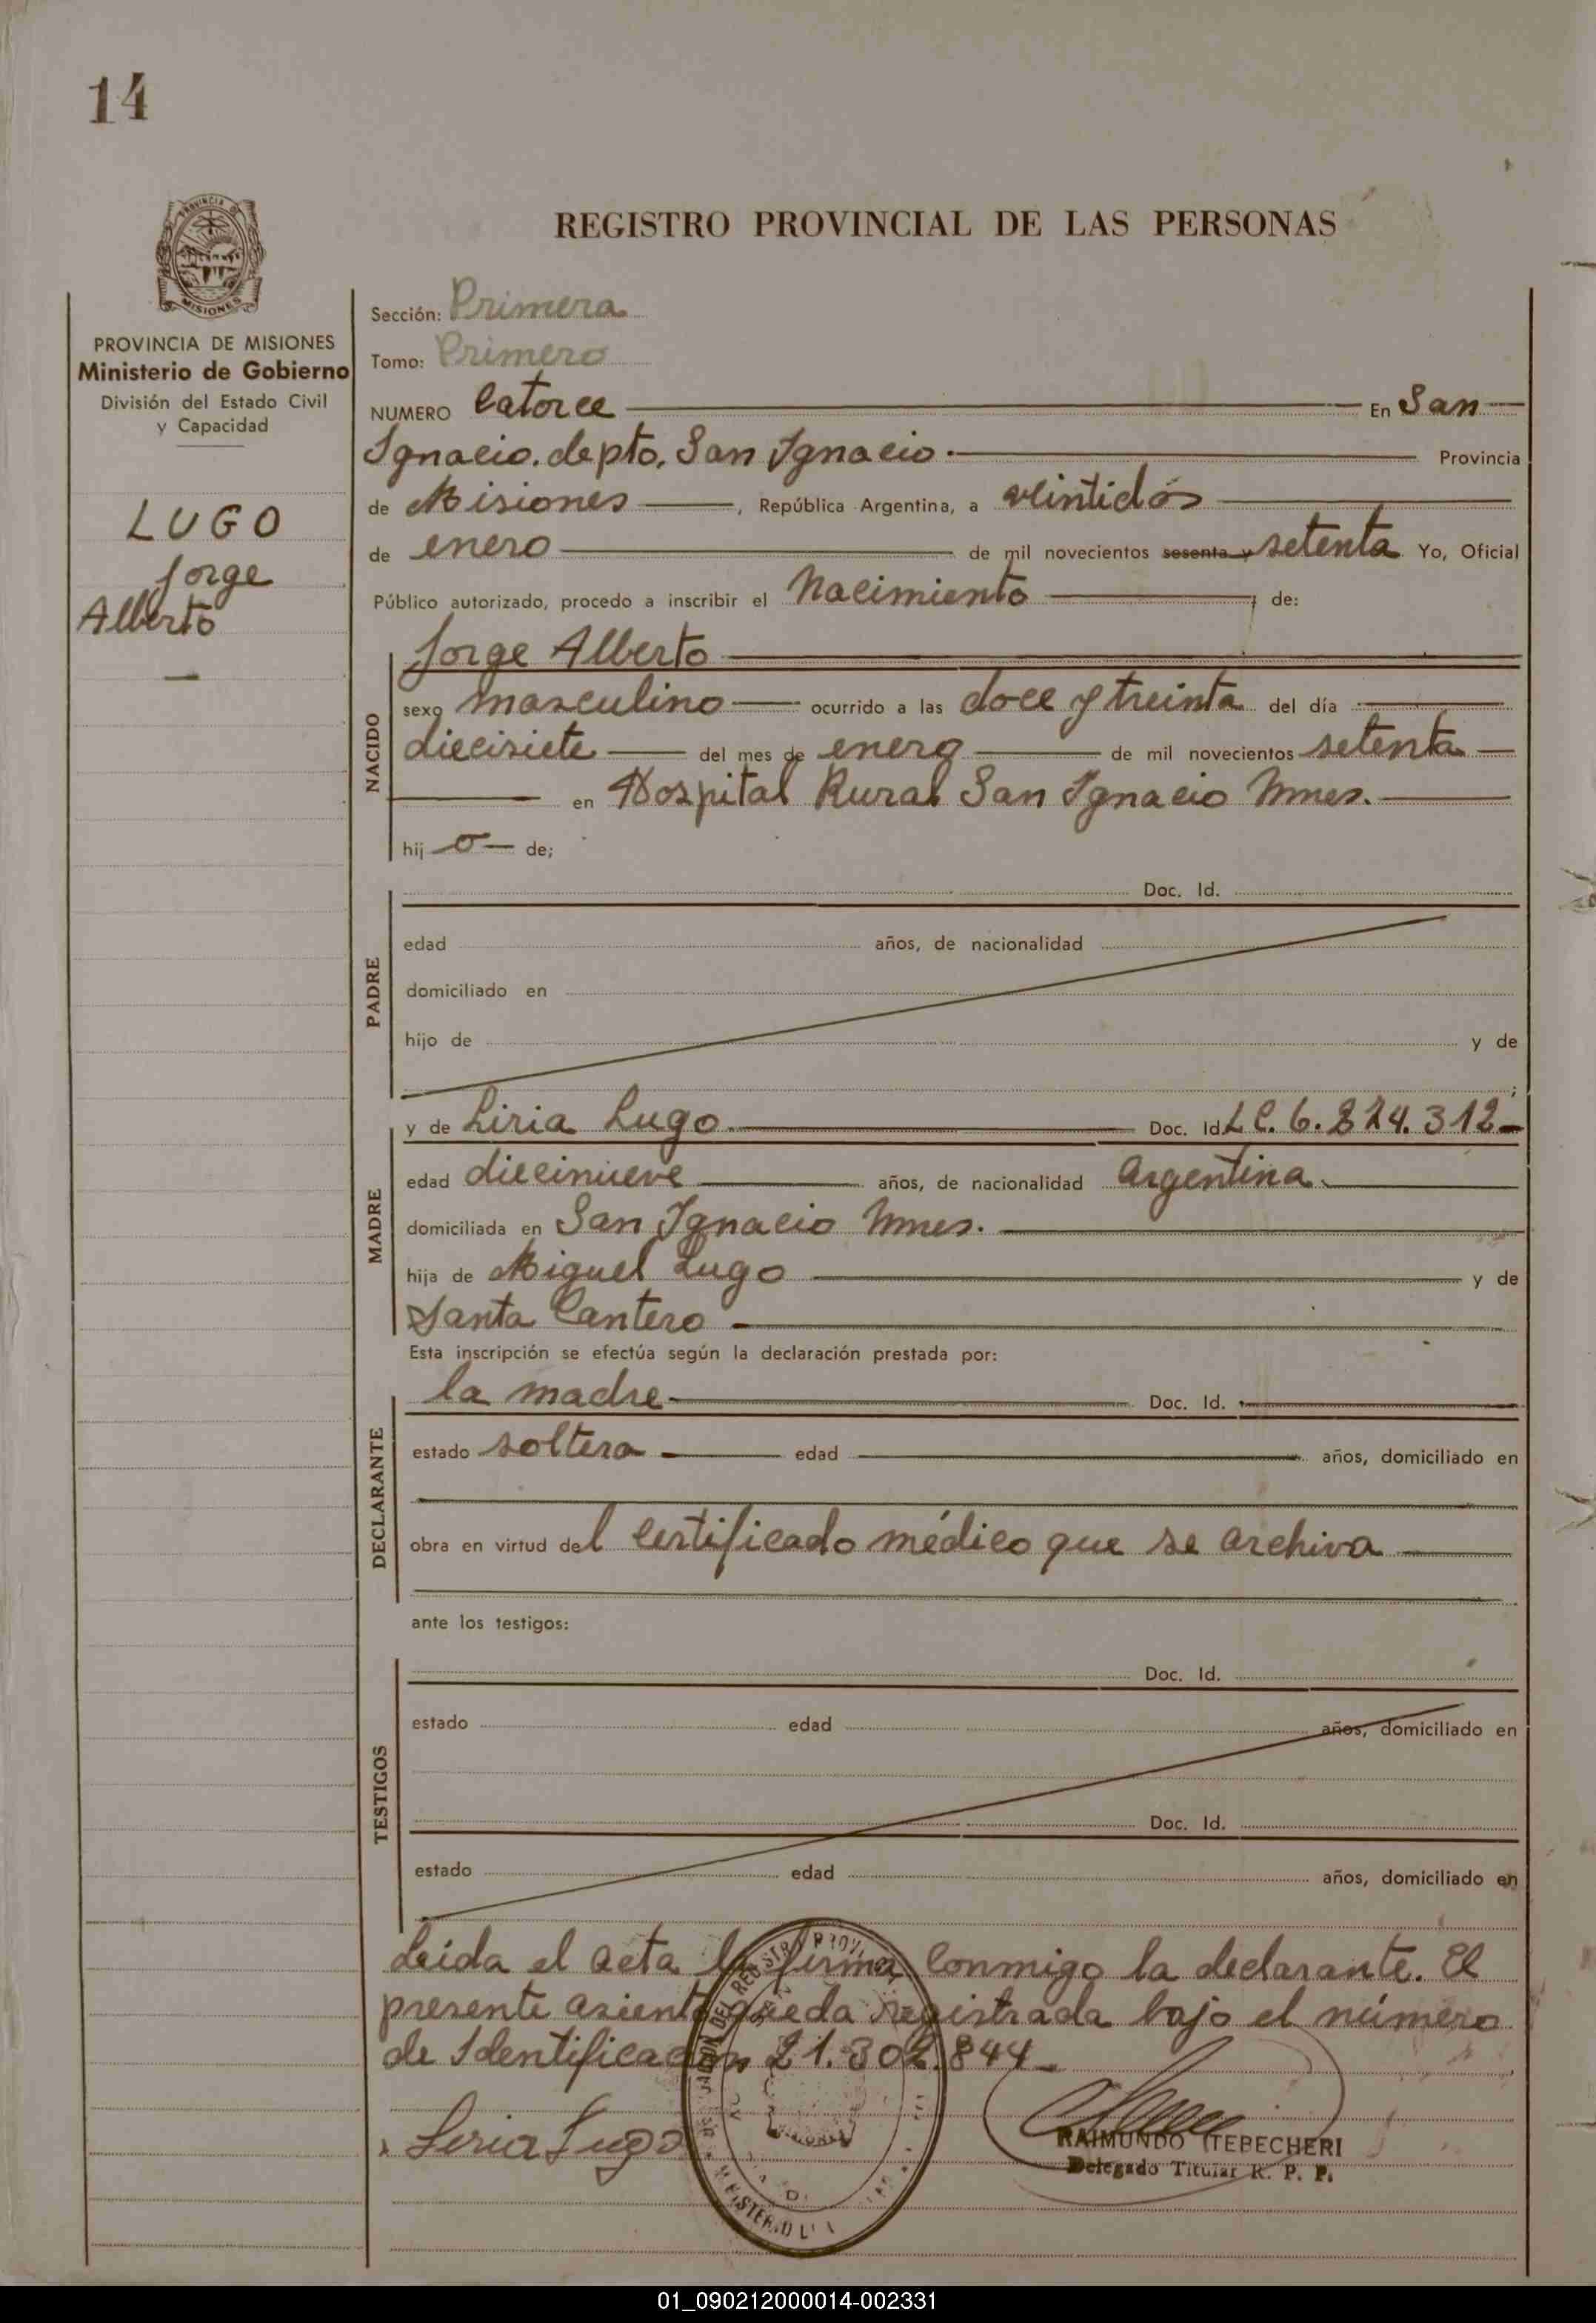 14
REGISTRO PROVINCIAL DE LAS PERSONAS
PROVINCIA DE MISIONES
Ministerio de Gobierno
División del Estado Civil
y Capacidad
LUGO
Jorge
Alberto
Sección: Primera
Tomo: Primero
NUMERO Catorce En San
Ignacio. depto. San Ignacio. Provincia
de Misiones, República Argentina, a veintidós
de enero de mil novecientos sesenta y setenta Yo, Oficial
Público autorizado, procedo a inscribir el Nacimiento de:
NACIDO
Jorge Alberto
sexo masculino ocurrido a las doce y treinta del día
diecisiete del mes de enero de mil novecientos setenta
en Hospital Rural San Ignacio Mnes.
hij o de;
PADRE
Doc. Id.
edad años, de nacionalidad
domiciliado en
hijo de y de
;
MADRE
y de Liria Lugo. Doc. Id. L.C. 6.824.312
edad diecinueve años, de nacionalidad Argentina.
domiciliada en San Ignacio Mnes.
hija de Miguel Lugo y de
Santa Cantero
Esta inscripción se efectúa según la declaración prestada por:
DECLARANTE
la madre Doc. Id.
estado soltera edad años, domiciliado en
obra en virtud del Certificado médico que se archiva
ante los testigos:
TESTIGOS
Doc. Id.
estado edad años, domiciliado en
Doc. Id.
estado edad años, domiciliado en
Leída el acta la firma conmigo la declarante. El
presente asiento queda registrada bajo el número
de Identificación 21.302.844
Liria Lugo
RAIMUNDO ITEPECHERI
Delegado Titular R. P. P.
01_090212000014-002331